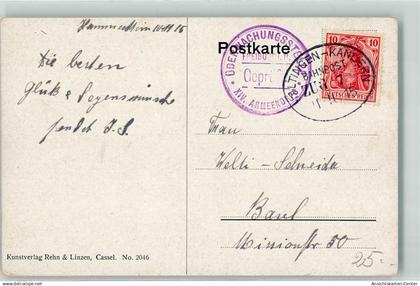 Hammerstein 10 II 16
Postkarte
ÜBERWACHUNGSSTELLE
FREIBURG
Geprüft
XIV. ARMEEKORPS
HALTINGEN-KANDERN
BAHNPOST
ZUG
10 10
DEUTSCHES REICH
Die besten
Glück & Segenswünsche
sendet J.S.
Frau
Welti-Schneider
Basel
Missionstr 50
Kunstverlag Rehn & Linzen, Cassel. No. 2046
25.-
Ansichtskarten-Center